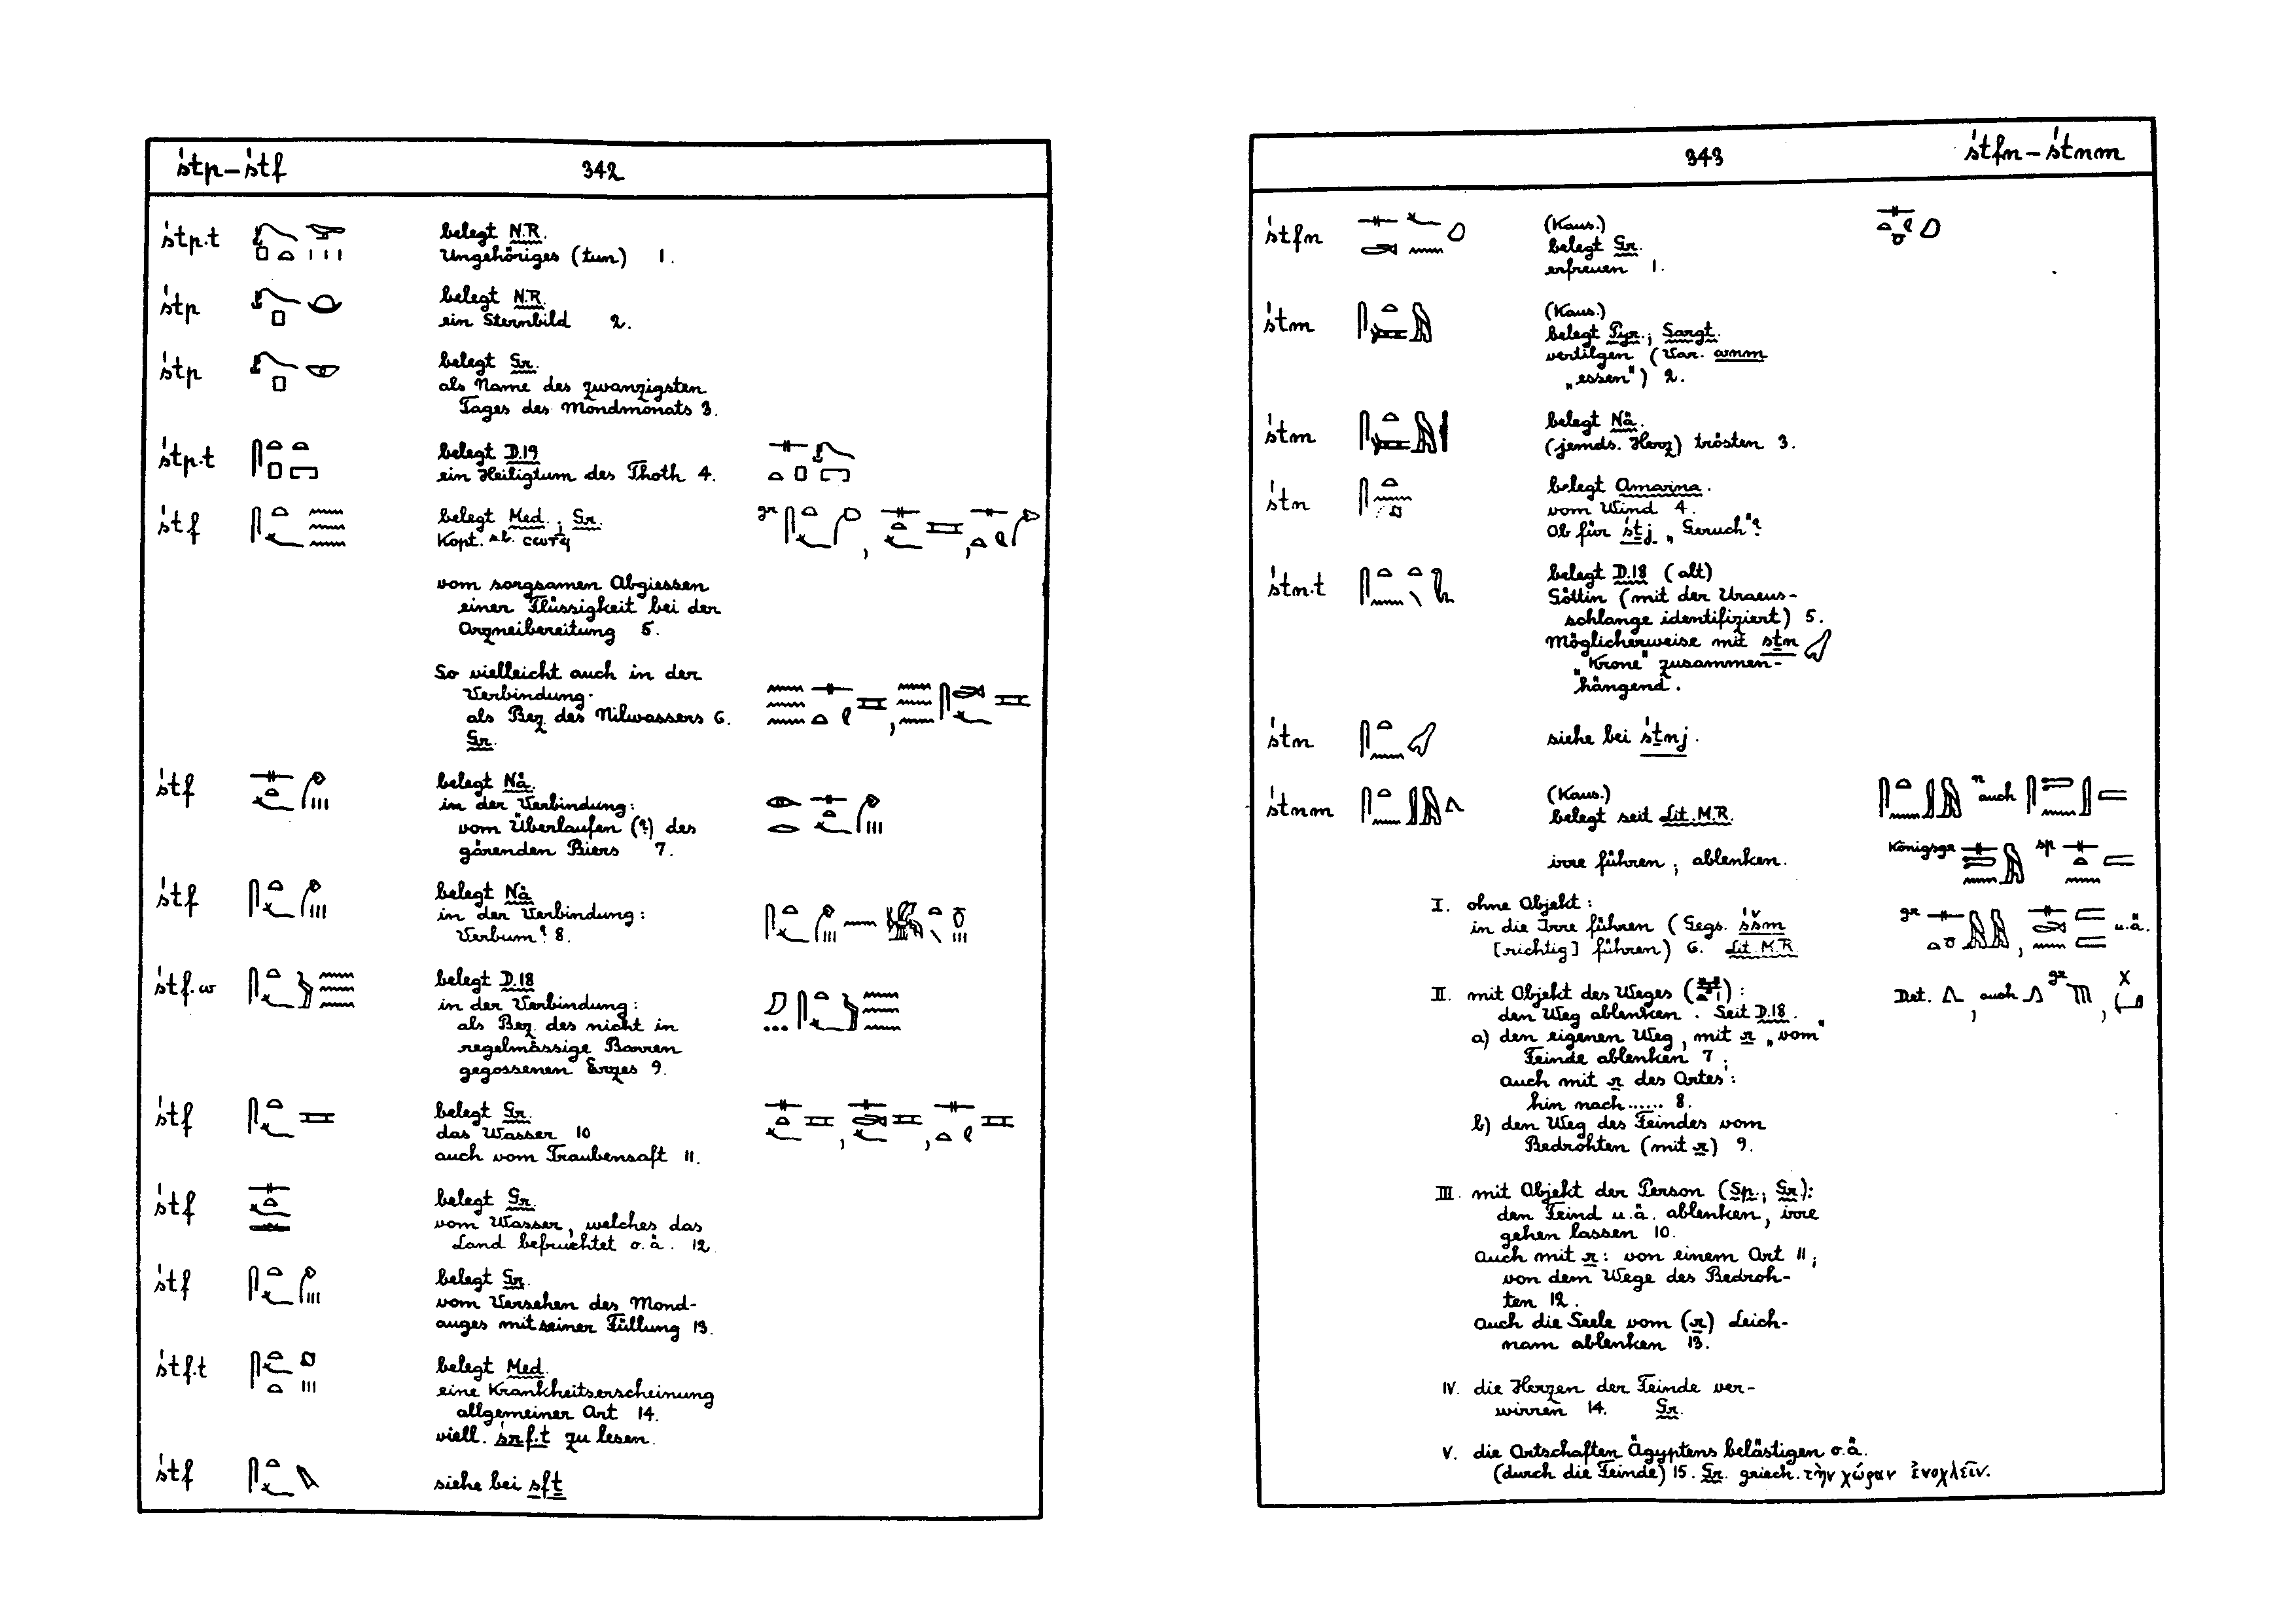 śtp–śtf 342
śtp.t belegt N.R.
Ungehöriges (tun) 1.
śtp belegt N.R.
ein Sternbild 2.
śtp belegt Gr.
als Name des zwanzigsten
Tages des Mondmonats 3.
śtp.t belegt D.19
ein Heiligtum des Thoth 4.
śtf belegt Med.; Gr. gr
Kopt. s.b. ⲥⲱⲧϥ
vom sorgsamen Abgiessen
einer Flüssigkeit bei der
Arzneibereitung 5.
So vielleicht auch in der
Verbindung.
als Bez. des Nilwassers 6.
Gr.
śtf belegt Nä.
in der Verbindung:
vom Überlaufen (?) des
gärenden Biers 7.
śtf belegt Nä
in der Verbindung:
Verbum? 8.
śtf.w belegt D.18
in der Verbindung:
als Bez. des nicht in
regelmässige Barren
gegossenen Erzes 9.
śtf belegt Gr.
das Wasser 10
auch vom Traubensaft 11.
śtf belegt Gr.
vom Wasser, welches das
Land befruchtet o.ä. 12
śtf belegt Gr.
vom Versehen des Mond-
auges mit seiner Füllung 13.
śtf.t belegt Med.
eine Krankheitserscheinung
allgemeiner Art 14.
viell. śrf.t zu lesen.
śtf siehe bei sfṯ
343 śtfn–śtnm
śtfn (Kaus.)
belegt Gr.
erfreuen 1.
śtm (Kaus.)
belegt Pyr.; Sargt.
vertilgen (Var. wnm
„essen") 2.
śtm belegt Nä.
(jemds. Herz) trösten 3.
śtn belegt Amarna.
vom Wind 4.
Ob für śṯj „Geruch"?
śtn.t belegt D.18 (alt)
Göttin (mit der Uraeus-
schlange identifiziert) 5.
Möglicherweise mit sṯn
"Krone" zusammen-
hängend.
śtn siehe bei śṯnj.
śtnm (Kaus.) n auch
belegt seit Lit. M.R.
irre führen, ablenken. Königsgr sp
I. ohne Objekt:
in die Irre führen (Gegs. śšm gr u.ä.
[richtig] führen) 6. Lit. M.R.
II. mit Objekt des Weges ( ): Det. , auch gr ,
den Weg ablenken. Seit D.18.
a) den eigenen Weg, mit r „vom"
Feinde ablenken 7;
auch mit r des Ortes:
hin nach...... 8.
b) den Weg des Feindes vom
Bedrohten (mit r) 9.
III. mit Objekt der Person (Sp.; Gr.):
den Feind u.ä. ablenken, irre
gehen lassen 10.
auch mit r: von einem Ort 11;
von dem Wege des Bedroh-
ten 12.
auch die Seele vom (r) Leich-
nam ablenken 13.
IV. die Herzen der Feinde ver-
wirren 14. Gr.
V. die Ortschaften Ägyptens belästigen o.ä.
(durch die Feinde) 15. Gr. griech. τὴν χώραν ἐνοχλεῖν.